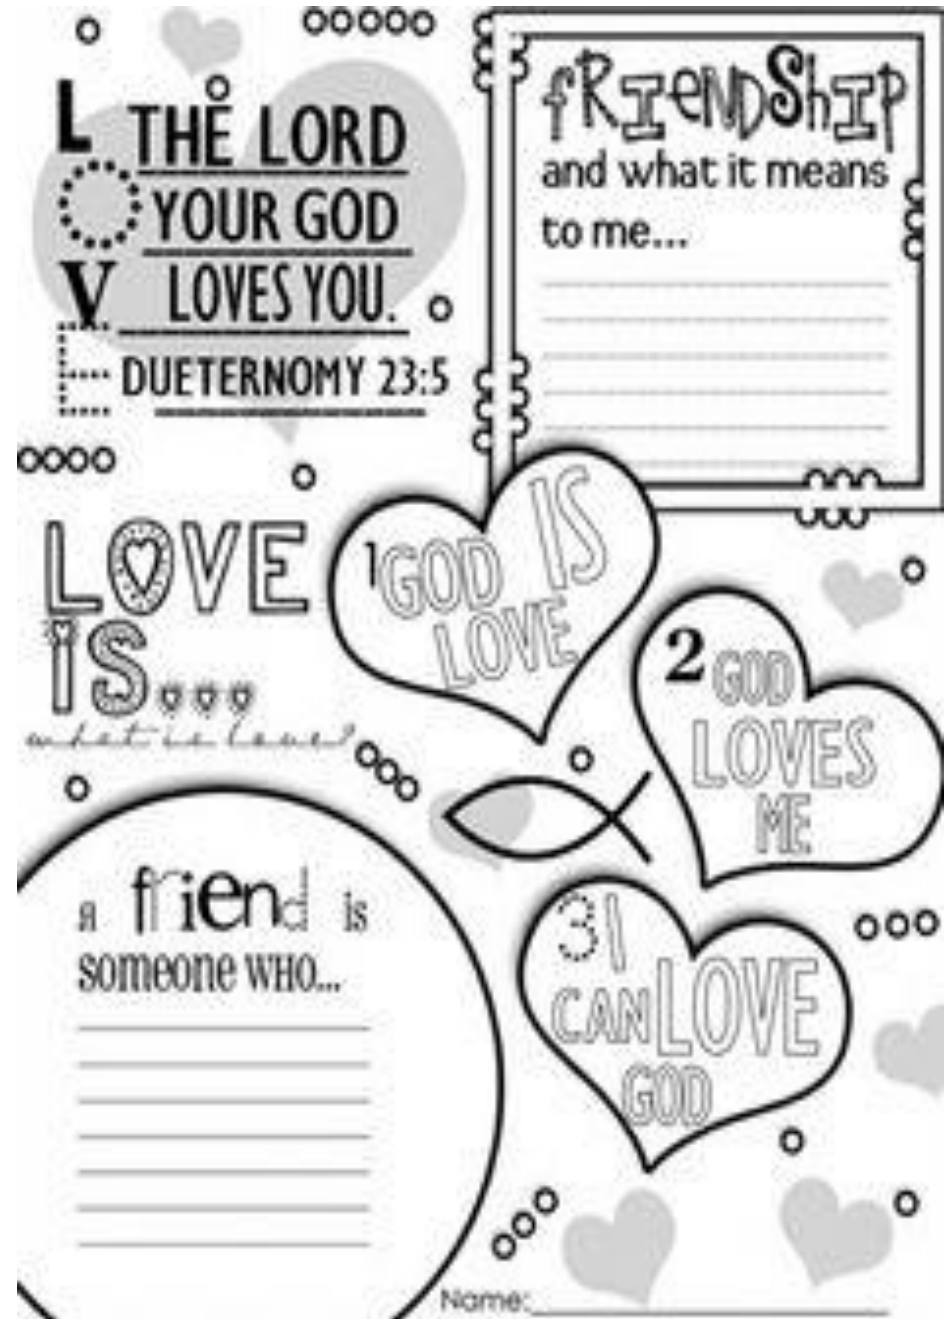 L
O
V
E
THE LORD
YOUR GOD
LOVES YOU.
DUETERNOMY 23:5
fRIeNDShIP
and what it means
to me...
LOVE
IS...
what is love?
1 GOD IS
LOVE
2 GOD
LOVES
ME
3 I
CAN LOVE
GOD
a friend is
someone WHO...
Name: